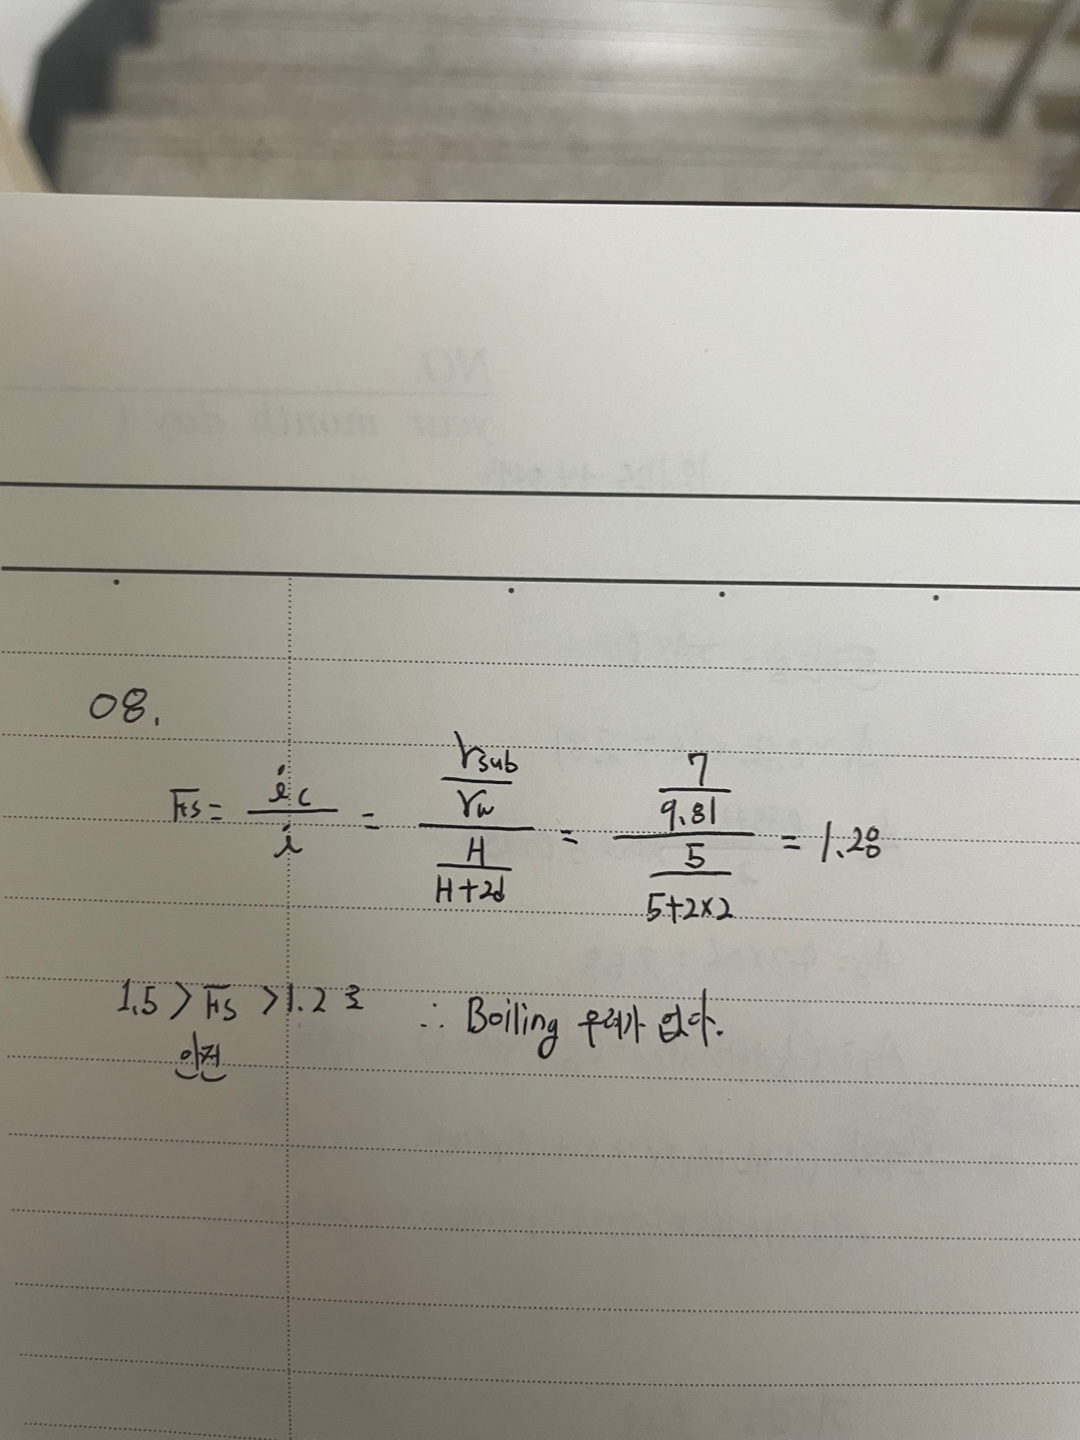 08.
Fs = ic/i = (rsub/rw)/(H/(H+2d)) = (7/9.81)/(5/(5+2×2)) = 1.28
1.5 > Fs > 1.2 로 ∴ Boiling 우려가 없다.
안전